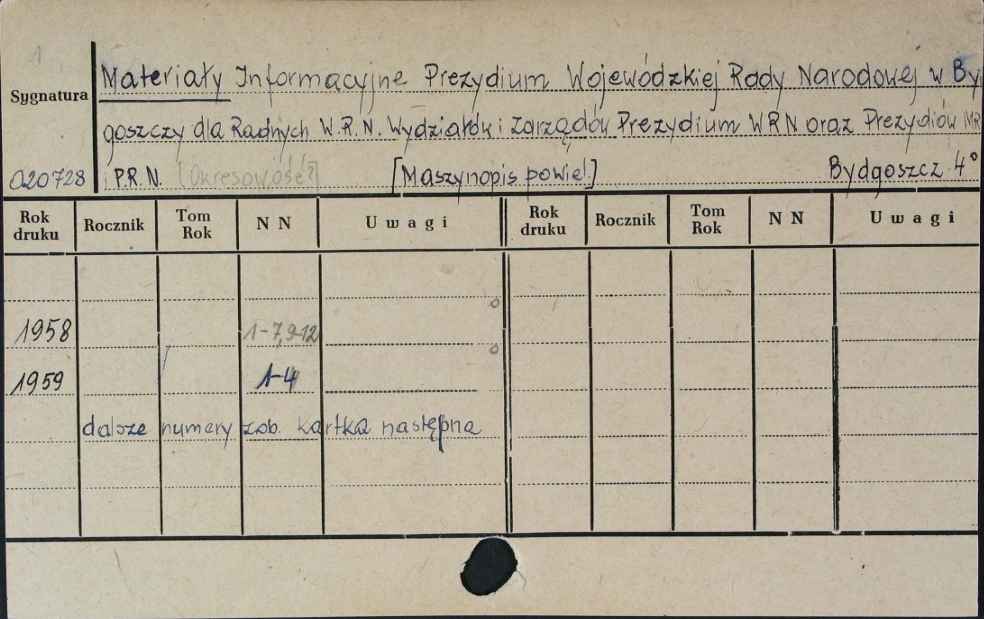 1
Materiały Informacyjne Prezydium Wojewódzkiej Rady Narodowej w By
Sygnatura
goszczy dla Radnych W.R.N. Wydziałów i Zarządów Prezydium WRN oraz Prezydiów MR
020728 i P.R.N. [Okresowość?] [Maszynopis powiel.] Bydgoszcz 4°
Rok druku Rocznik Tom Rok N N Uwagi Rok druku Rocznik Tom Rok N N Uwagi
1958 1-7,9-12
1959 1-4
dalsze numery zob. kartka następna